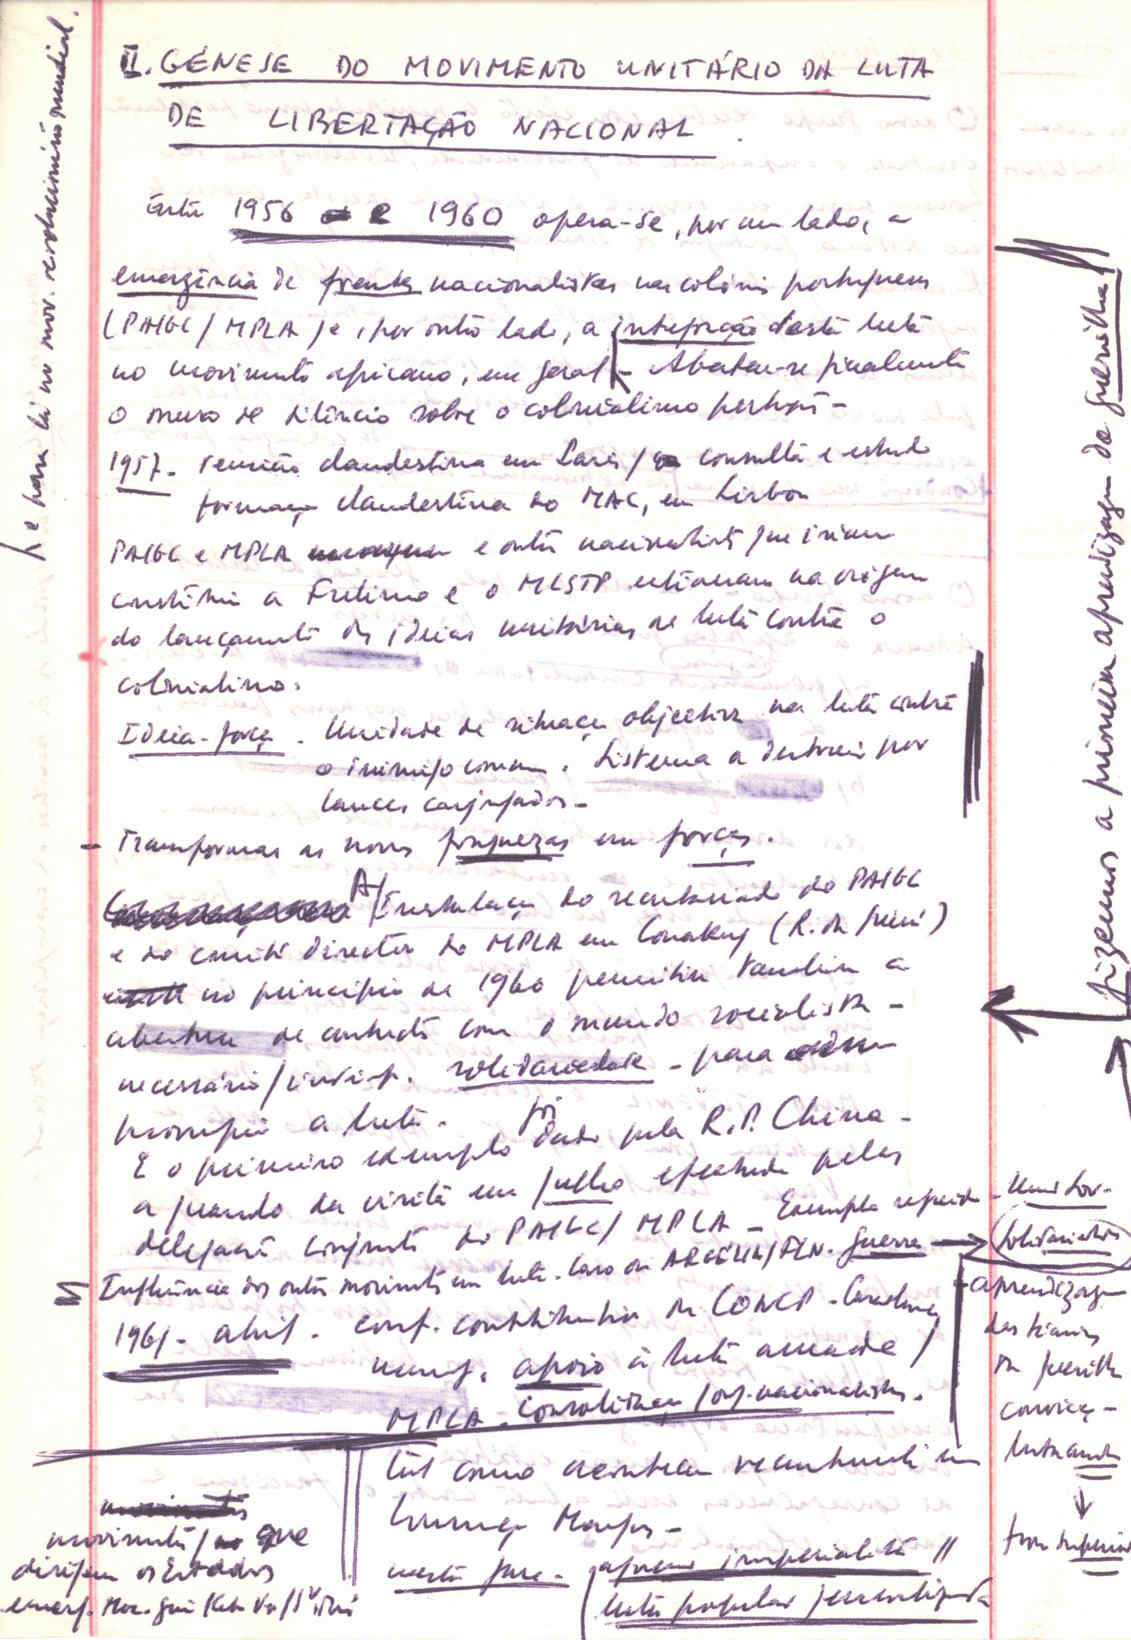 II. GÉNESE DO MOVIMENTO UNITÁRIO DA LUTA
DE LIBERTAÇÃO NACIONAL.
Entre 1956 e 1960 opera-se, por um lado, a
emergência de frentes nacionalistas nas colónias portuguesas
(PAIGC/MPLA) e, por outro lado, a integração desta luta
no movimento africano, em geral - Abateu-se finalmente
o muro de silêncio sobre o colonialismo português -
1957 - reunião clandestina em Paris / consulta e estudo
formação clandestina do MAC, em Lisboa
PAIGC e MPLA e outros nacionalistas que iriam
constituir a Frelimo e o MLSTP estiveram na origem
do lançamento das ideias unitárias de luta contra o
colonialismo.
Ideia-força. Unidade de situação objectiva na luta contra
o inimigo comum. Sistema a destruir por
lances conjugados -
- Transformar as nossas fraquezas em forças.
A/ Instalação do secretariado do PAIGC
e do comité director do MPLA em Conakry (R. da Guiné)
no princípio de 1960 permitiu também a
abertura de contactos com o mundo socialista -
necessário/indisp. solidariedade - para
prosseguir a luta.
E o primeiro exemplo foi dado pela R.P. China -
aquando da visita em julho efectuada pelas
delegações conjuntas do PAIGC/MPLA - Exemplo seguido
Influência dos outros movimentos em luta. Caso da ARGÉLIA/FLN. guerra
1961 - abril. conf. constitutiva da CONCP - Casablanca
apoio à luta armada /
MPLA - Consolidação/org. nacionalistas.
tal como aconteceu recentemente em
Lourenço Marques -
nesta fase - aparato imperialista //
luta popular generalizada
movimentos / que
dirigem os Estados
emerg. Moç. Guiné Cabo Verde/S. Tomé
e para lá no mov. revolucionário mundial.
fizemos a primeira aprendizagem da guerrilha
Solidariedade
- aprendizagem
das técnicas
da guerrilha